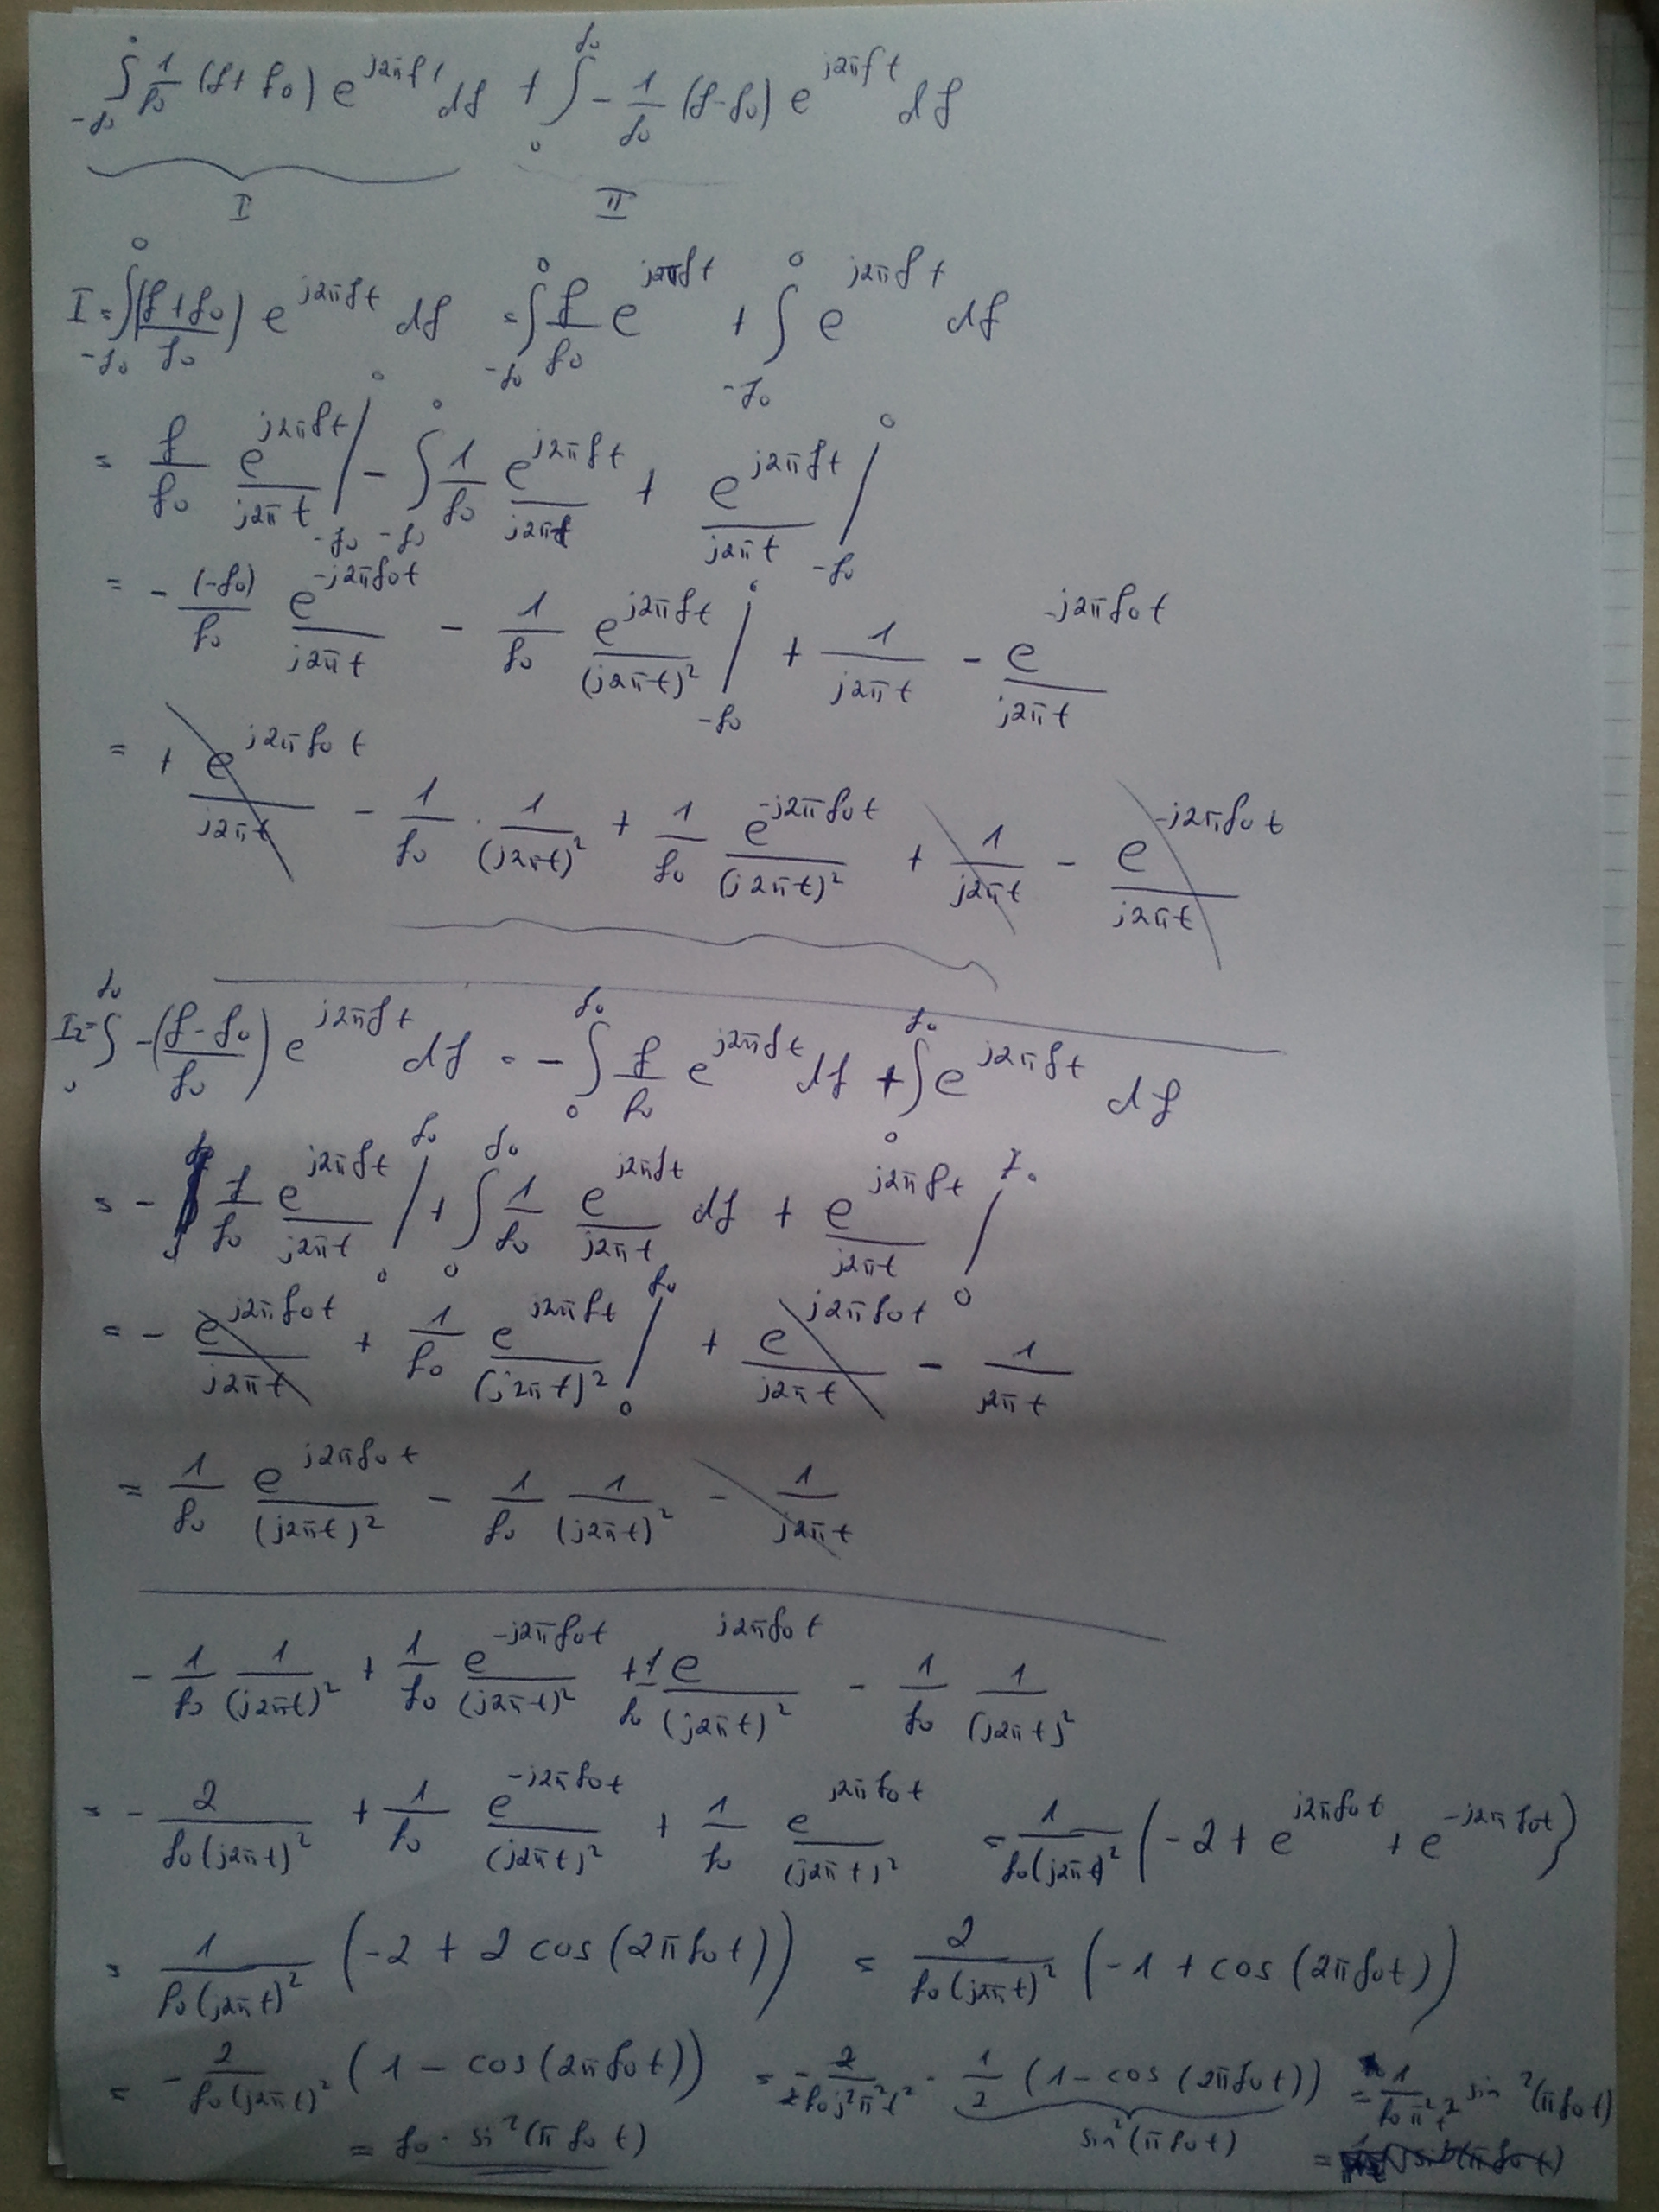 ∫_{-f₀}^{0} 1/f₀ (f+f₀) e^{j2πft} df + ∫_{0}^{f₀} - 1/f₀ (f-f₀) e^{j2πft} df
I II
I = ∫_{-f₀}^{0} ((f+f₀)/f₀) e^{j2πft} df = ∫_{-f₀}^{0} f/f₀ e^{j2πft} + ∫_{-f₀}^{0} e^{j2πft} df
= f/f₀ e^{j2πft}/(j2πt) |_{-f₀}^{0} - ∫_{-f₀}^{0} 1/f₀ e^{j2πft}/(j2πt) + e^{j2πft}/(j2πt) |_{-f₀}^{0}
= - (-f₀)/f₀ e^{-j2πf₀t}/(j2πt) - 1/f₀ e^{j2πft}/(j2πt)² |_{-f₀}^{0} + 1/(j2πt) - e^{-j2πf₀t}/(j2πt)
= + e^{j2πf₀t}/(j2πt) - 1/f₀ · 1/(j2πt)² + 1/f₀ e^{-j2πf₀t}/(j2πt)² + 1/(j2πt) - e^{-j2πf₀t}/(j2πt)
I₂ = ∫_{0}^{f₀} -((f-f₀)/f₀) e^{j2πft} df = - ∫_{0}^{f₀} f/f₀ e^{j2πft} df + ∫_{0}^{f₀} e^{j2πft} df
= - f/f₀ e^{j2πft}/(j2πt) |_{0}^{f₀} + ∫_{0}^{f₀} 1/f₀ e^{j2πft}/(j2πt) df + e^{j2πft}/(j2πt) |_{0}^{f₀}
= - e^{j2πf₀t}/(j2πt) + 1/f₀ e^{j2πft}/(j2πt)² |_{0}^{f₀} + e^{j2πf₀t}/(j2πt) - 1/(j2πt)
= 1/f₀ e^{j2πf₀t}/(j2πt)² - 1/f₀ 1/(j2πt)² - 1/(j2πt)
- 1/f₀ 1/(j2πt)² + 1/f₀ e^{-j2πf₀t}/(j2πt)² + 1/f₀ e^{j2πf₀t}/(j2πt)² - 1/f₀ 1/(j2πt)²
= - 2/(f₀(j2πt)²) + 1/f₀ e^{-j2πf₀t}/(j2πt)² + 1/f₀ e^{j2πf₀t}/(j2πt)² = 1/(f₀(j2πt)²) (-2 + e^{j2πf₀t} + e^{-j2πf₀t})
= 1/(f₀(j2πt)²) (-2 + 2 cos(2πf₀t)) = 2/(f₀(j2πt)²) (-1 + cos(2πf₀t))
= - 2/(f₀(j2πt)²) (1 - cos(2πf₀t)) = - 2/(2f₀j²π²t²) · 1/2 (1 - cos(2πf₀t)) = 1/(f₀π²t²) sin²(πf₀t)
sin²(πf₀t)
= f₀ · si²(πf₀t)